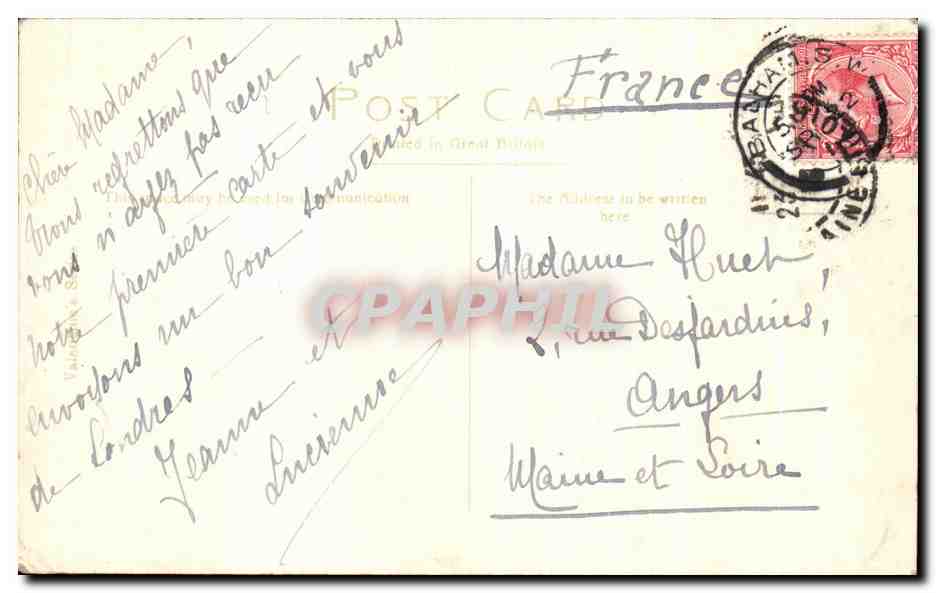 France
POST CARD
Printed in Great Britain
This space may be used for communication
The Address to be written
here
Chère Madame,
Nous regrettons que
vous n'ayez pas reçu
notre première carte et vous
envoyons un bon souvenir
de Londres
Jeanne et
Lucienne
Madame Huet,
2, rue Desjardins,
Angers
Maine et Loire
BALHAM. S.W.
CPAPHIL